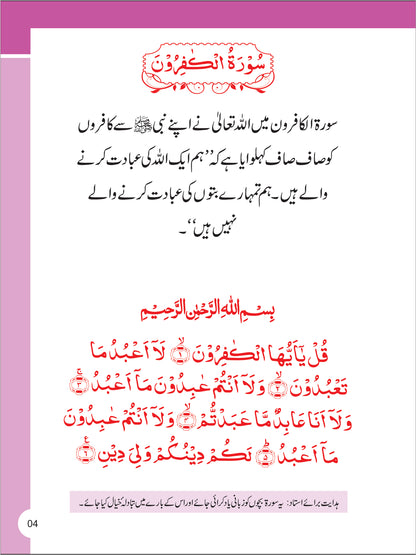 سُوْرَةُ الْكٰفِرُوْنَ
سورۃ الکافرون میں اللہ تعالیٰ نے اپنے نبی ﷺ سے کافروں
کو صاف صاف کہلوایا ہے کہ ’’ہم ایک اللہ کی عبادت کرنے
والے ہیں۔ ہم تمہارے بتوں کی عبادت کرنے والے
نہیں ہیں‘‘۔
بِسْمِ اللهِ الرَّحْمٰنِ الرَّحِيْمِ
قُلْ يٰٓاَيُّهَا الْكٰفِرُوْنَ ۙ﴿۱﴾ لَاۤ اَعْبُدُ مَا
تَعْبُدُوْنَ ۙ﴿۲﴾ وَلَاۤ اَنْتُمْ عٰبِدُوْنَ مَاۤ اَعْبُدُ ۚ﴿۳﴾
وَلَاۤ اَنَا عَابِدٌ مَّا عَبَدْتُّمْ ۙ﴿۴﴾ وَلَاۤ اَنْتُمْ عٰبِدُوْنَ
مَاۤ اَعْبُدُ ؕ﴿۵﴾ لَكُمْ دِيْنُكُمْ وَلِیَ دِيْنِ ﴿۶﴾
ہدایت برائے استاد: یہ سورۃ بچوں کو زبانی یاد کرائی جائے اور اس کے بارے میں تبادلۂ خیال کیا جائے۔
04